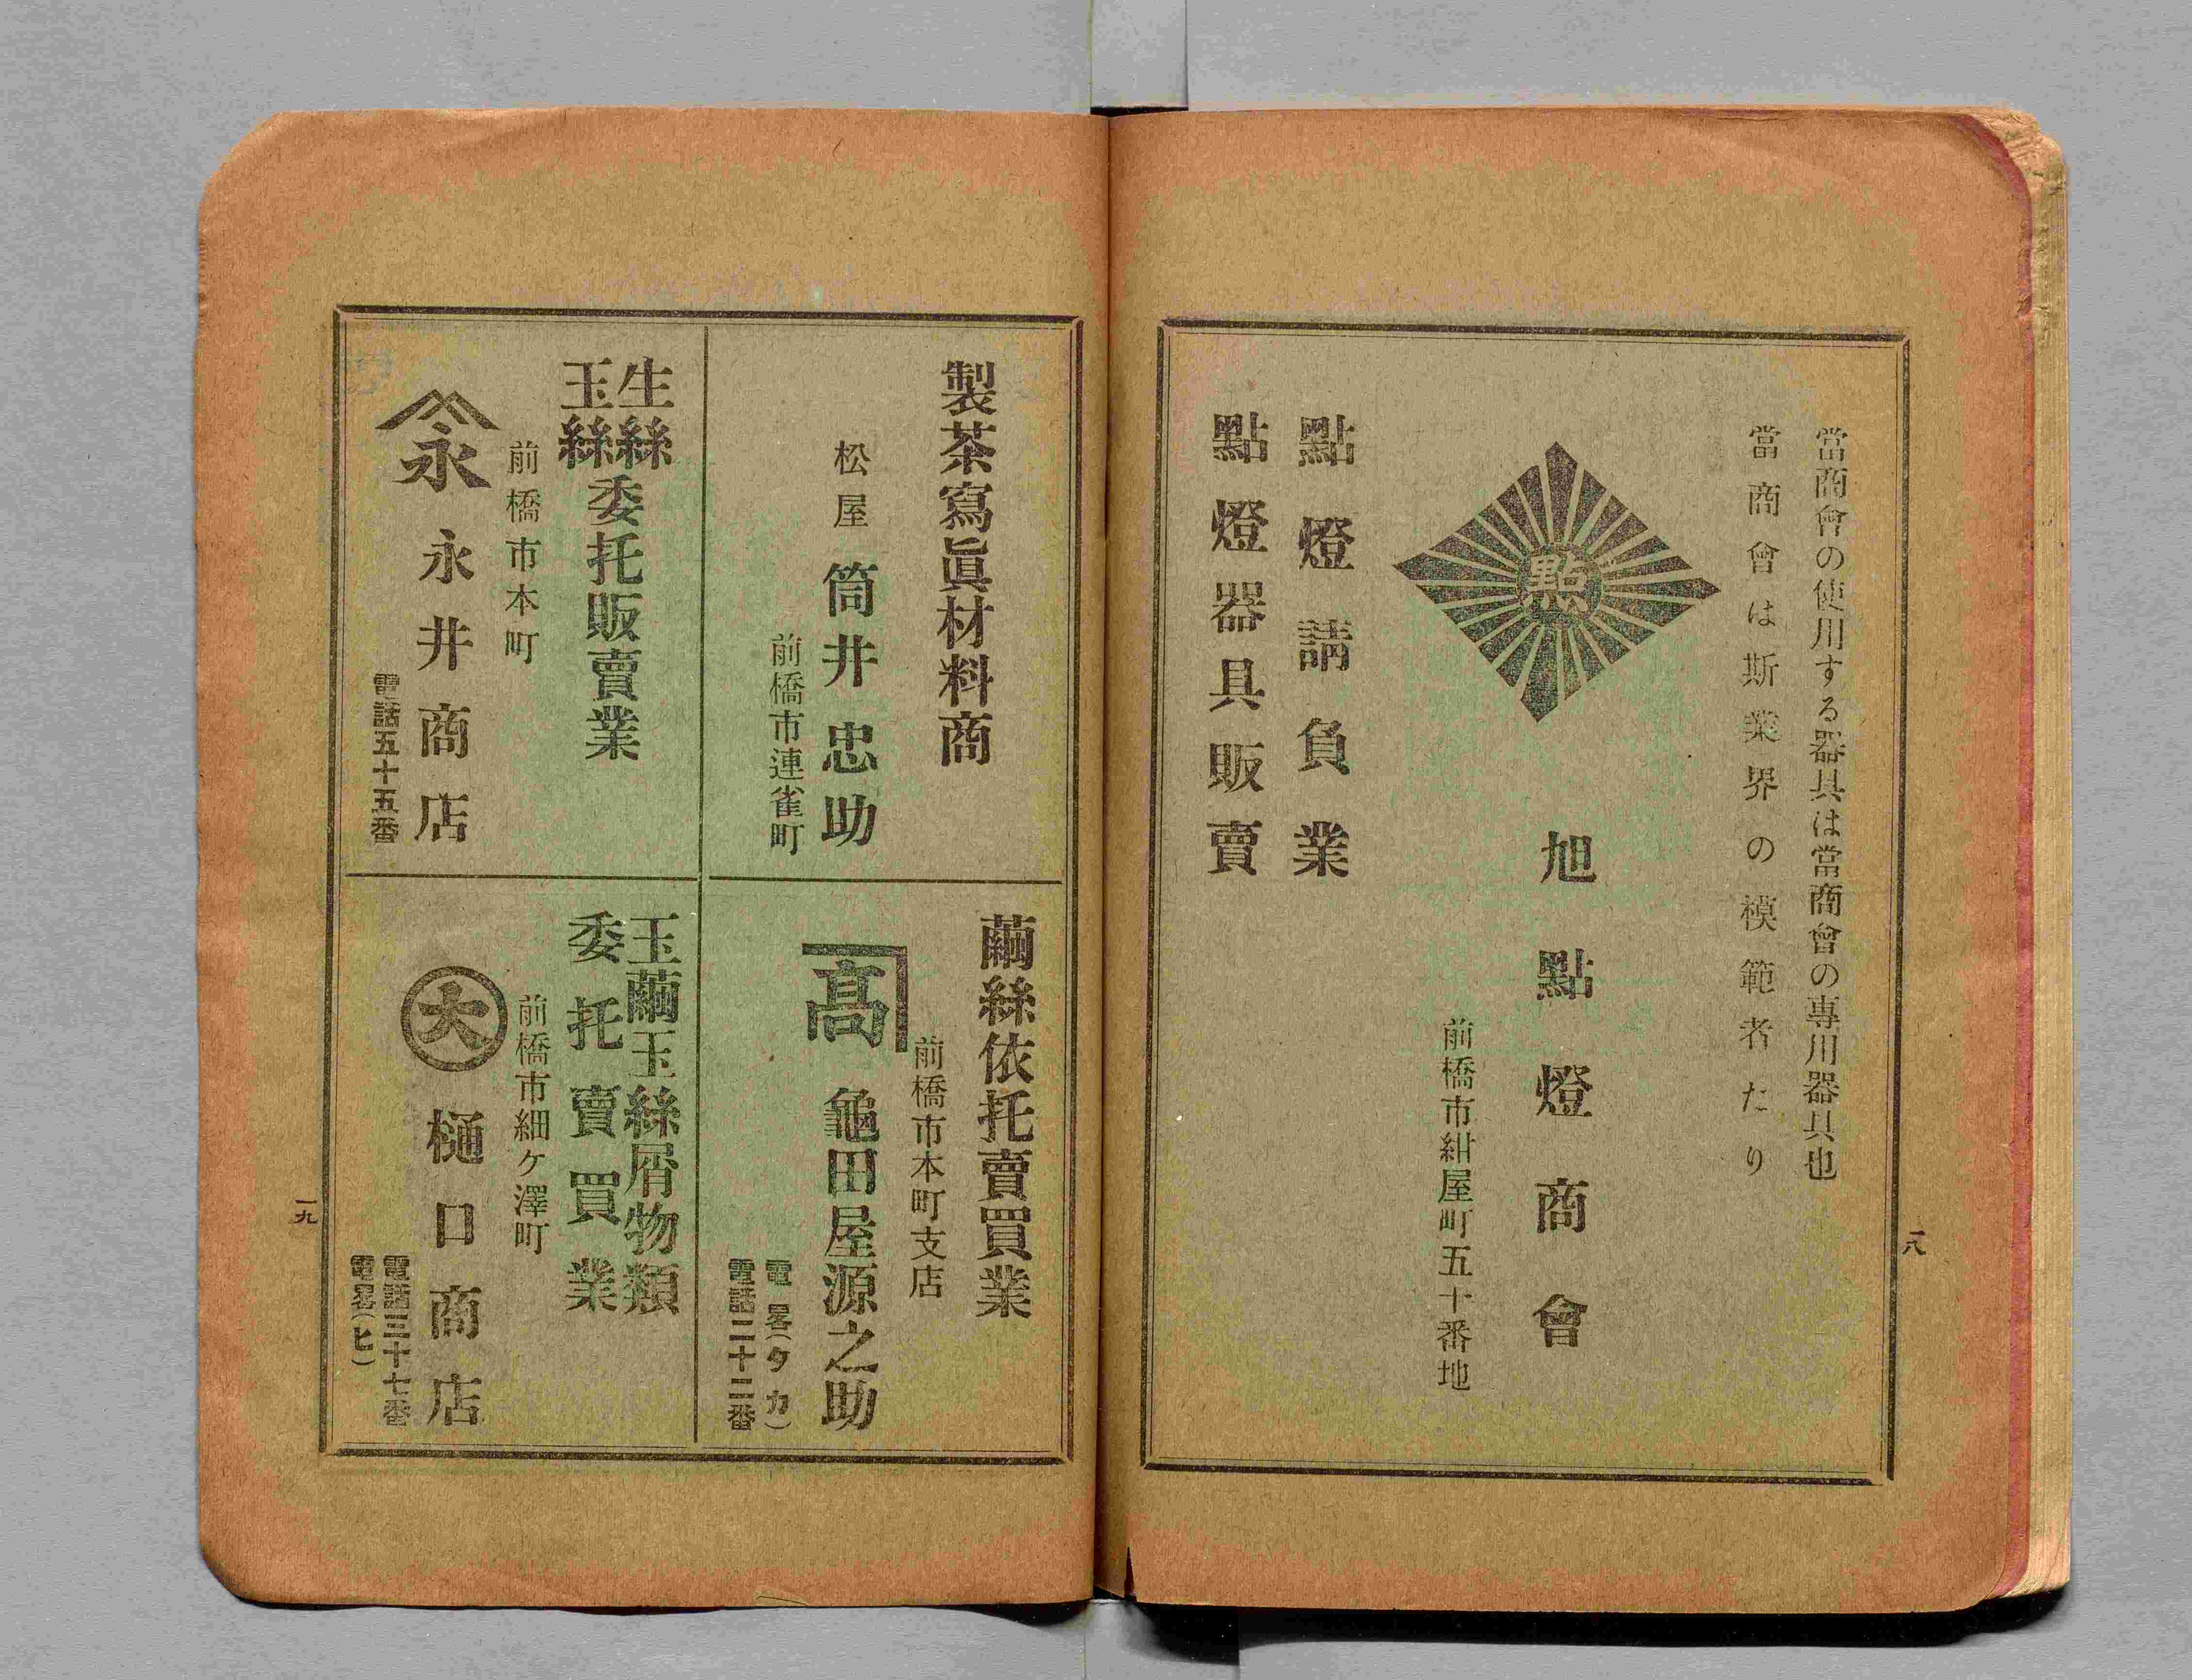 當商會の使用する器具は當商會の專用器具也
當商會は斯業界の模範者たり
點
旭點燈商會
前橋市紺屋町五十番地
點燈請負業
點燈器具販賣
一八
製茶寫眞材料商
松屋 筒井忠助
前橋市連雀町
繭絲依托賣買業
前橋市本町支店
髙
龜田屋源之助
電畧(タカ)
電話二十二番
生絲
玉絲
委托販賣業
前橋市本町
永
永井商店
電話五十五番
玉繭玉絲屑物類
委托賣買業
前橋市細ケ澤町
大
樋口商店
電話三十七番
電畧(ヒ)
一九